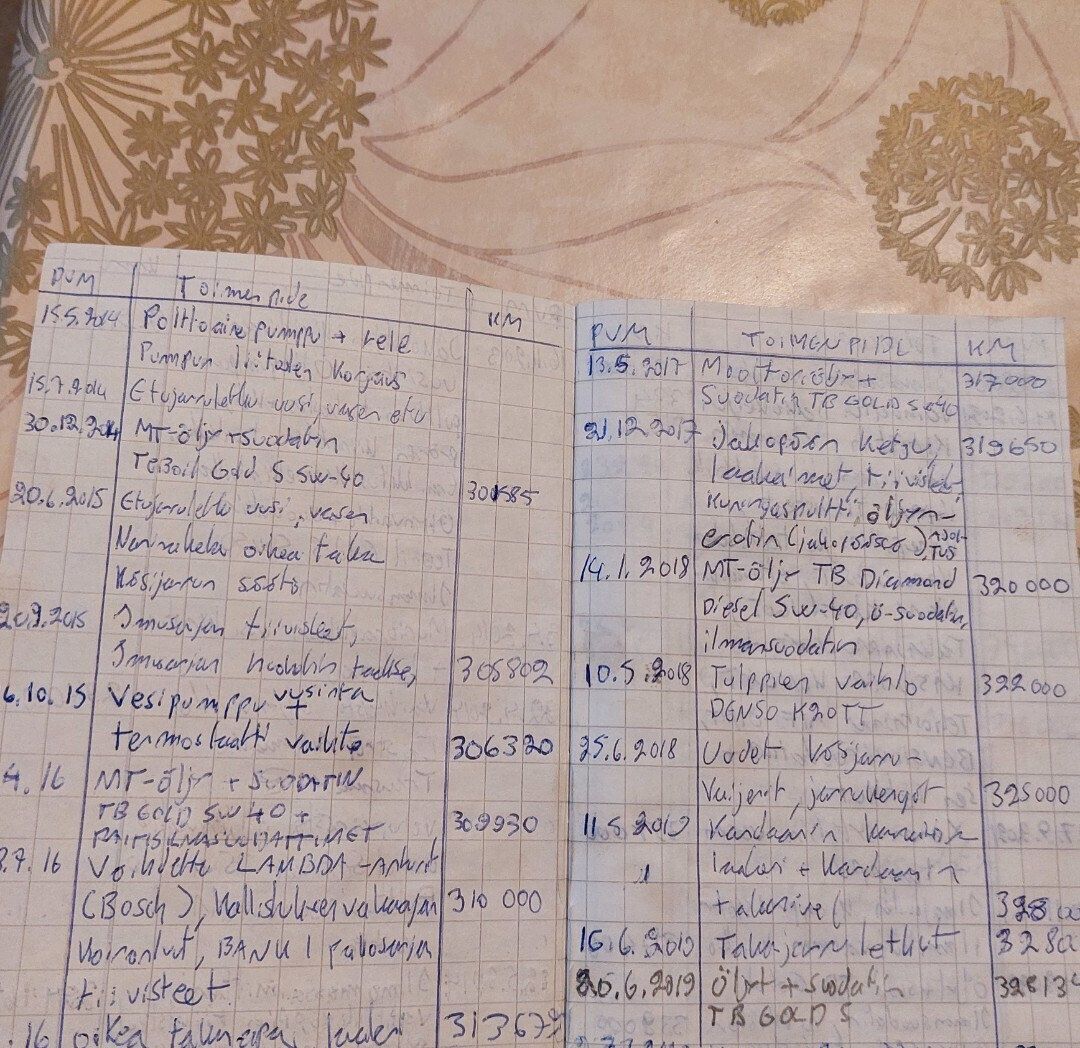 PVM Toimenpide KM
15.5.2014 Polttoaine pumppu + rele
Pumpun liitosten korjaus
15.7.2014 Etujarruletku uusi, vasen etu
30.12.2014 MT-öljy + suodatin
Teboil Gold S 5W-40 301585
20.6.2015 Etujarruletku uusi, vasen
oikea taka
Käsijarrun säätö
20.9.2015 Imusarjan tiivisteet,
Imusarjan 305802
6.10.15 Vesipumppu uusinta +
termostaatti vaihto 306320
4.16 MT-öljy + SUODATIN
TB GOLD 5W40 + 309930
.7.16 Vaihdettu LAMBDA-Anturit
(Bosch), kallistuksenvakaajan 310 000
koiranluut, BANK 1 pakosarja
tiivisteet
.16 oikea takanapa laakeri 31367
PVM TOIMENPIDE KM
13.5.2017 Moottoriöljy + 317000
Suodatin TB GOLD 5W40
21.12.2017 Jakopään ketju, 319650
laakaimet, tiivisteet,
Kuningaspultti, öljyn-
erotin (jakopäässä)
14.1.2018 MT-öljy TB Diamond 320 000
Diesel 5W-40, ö-suodatin,
ilmansuodatin
10.5.2018 Tulppien vaihto 322 000
DENSO K20TT
25.6.2018 Uudet käsijarru-
vaijerit, jarrukengät 325000
11.5.2019 Kardaanin
laakeri + Kardaanin
328
16.6.2019 Takajarruletkut 328
25.6.2019 Öljyt + suodatin 32813
TB GOLD S